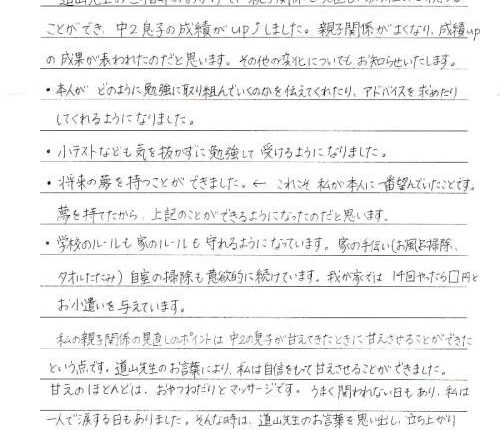 ことができ、中2息子の成績がup↑しました。親子関係がよくなり、成績up
の成果が表われたのだと思います。その他の変化についてもお知らせいたします。
・本人が どのように勉強に取り組んでいくのかを伝えてくれたり、アドバイスを求めたり
してくれるようになりました。
・小テストなども気を抜かずに勉強して受けるようになりました。
・将来の夢を持つことができました。← これこそ私が本人に一番望んでいたことです。
夢を持てたから、上記のことができるようになったのだと思います。
・学校のルールも家のルールも守れるようになっています。家の手伝い(お風呂掃除、
タオルたたみ)自室の掃除も意欲的に続けています。我が家では 1回やったら□円と
お小遣いを与えています。
私の親子関係の見直しのポイントは中2の息子が甘えてきたときに甘えさせることができた
という点です。道山先生のお言葉により、私は自信をもって甘えさせることができました。
甘えのほとんどは、おやつねだりとマッサージです。うまく関われない日もあり、私は
一人で涙する日もありました。そんな時は、道山先生のお言葉を思い出し、立ち上がり